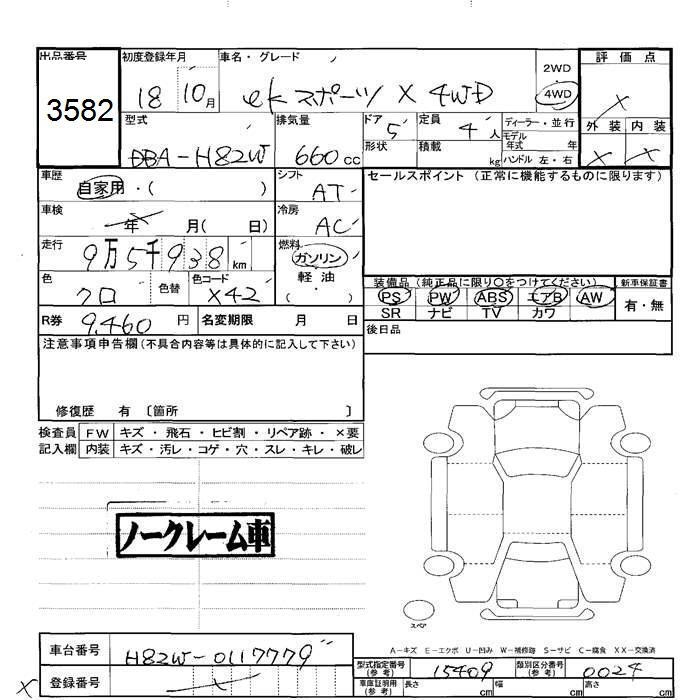 出品番号 初度登録年月 車名・グレード 評価点
3582 18 10月 ekスポーツ X 4WD 2WD 4WD X
型式 排気量 ドア 5 定員 4人 ディーラー・並行 外装 内装
DBA-H82W 660cc 形状 積載 kg モデル年式 年 ハンドル 左・右 X X
車歴 自家用・( ) シフト AT セールスポイント (正常に機能するものに限ります)
車検 年 月( 日) 冷房 AC
走行 9万5千938km 燃料 ガソリン
色 クロ 色替 色コード X42 軽油 ( ) 装備品 (純正品に限り○をつけてください) 新車保証書
PS PW ABS エアB AW 有・無
SR ナビ TV カワ
R券 9,460円 名変期限 月 日 後日品
注意事項申告欄(不具合内容等は具体的に記入して下さい)
修復歴 有 〔箇所 〕
検査員 FW キズ・飛石・ヒビ割・リペア跡・×要
記入欄 内装 キズ・汚レ・コゲ・穴・スレ・キレ・破レ
ノークレーム車
スペア
A-キズ E-エクボ U-凹み W-補修跡 S-サビ C-腐食 XX-交換済
車台番号 H82W-0117779 型式指定番号(参考) 15409 類別区分番号(参考) 0024
登録番号 車庫証明用(参考) 長さ cm 幅 cm 高さ cm
X